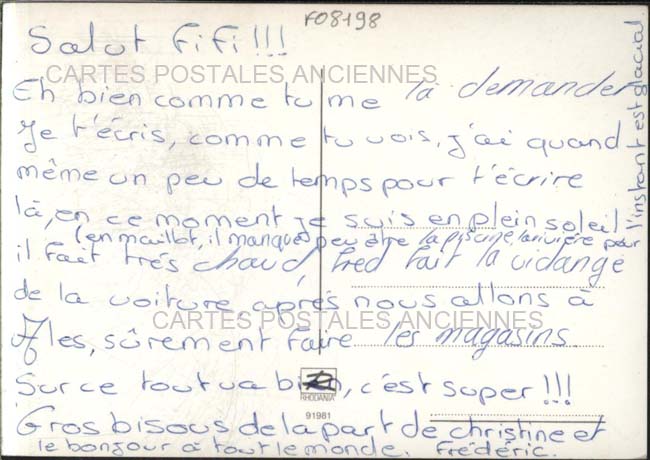 F08198
Salut FiFi!!!
CARTES POSTALES ANCIENNES
Eh bien comme tu me la demander
Je t'écris, comme tu vois, j'ai quand
même un peu de temps pour t'écrire
là, en ce moment je suis en plein soleil
(en maillot, il manque peu être la piscine, la rivière pour l'instant est glacial
il fait trés chaud, Fred fait la vidange
de la voiture, aprés nous allons à
CARTES POSTALES ANCIENNES
Ales, sûrement faire les magasins.
Sur ce tout va bien, c'est super!!!
RHODANIA
91981
Gros bisous de la part de christine et
le bonjour à tout le monde. Frédéric.